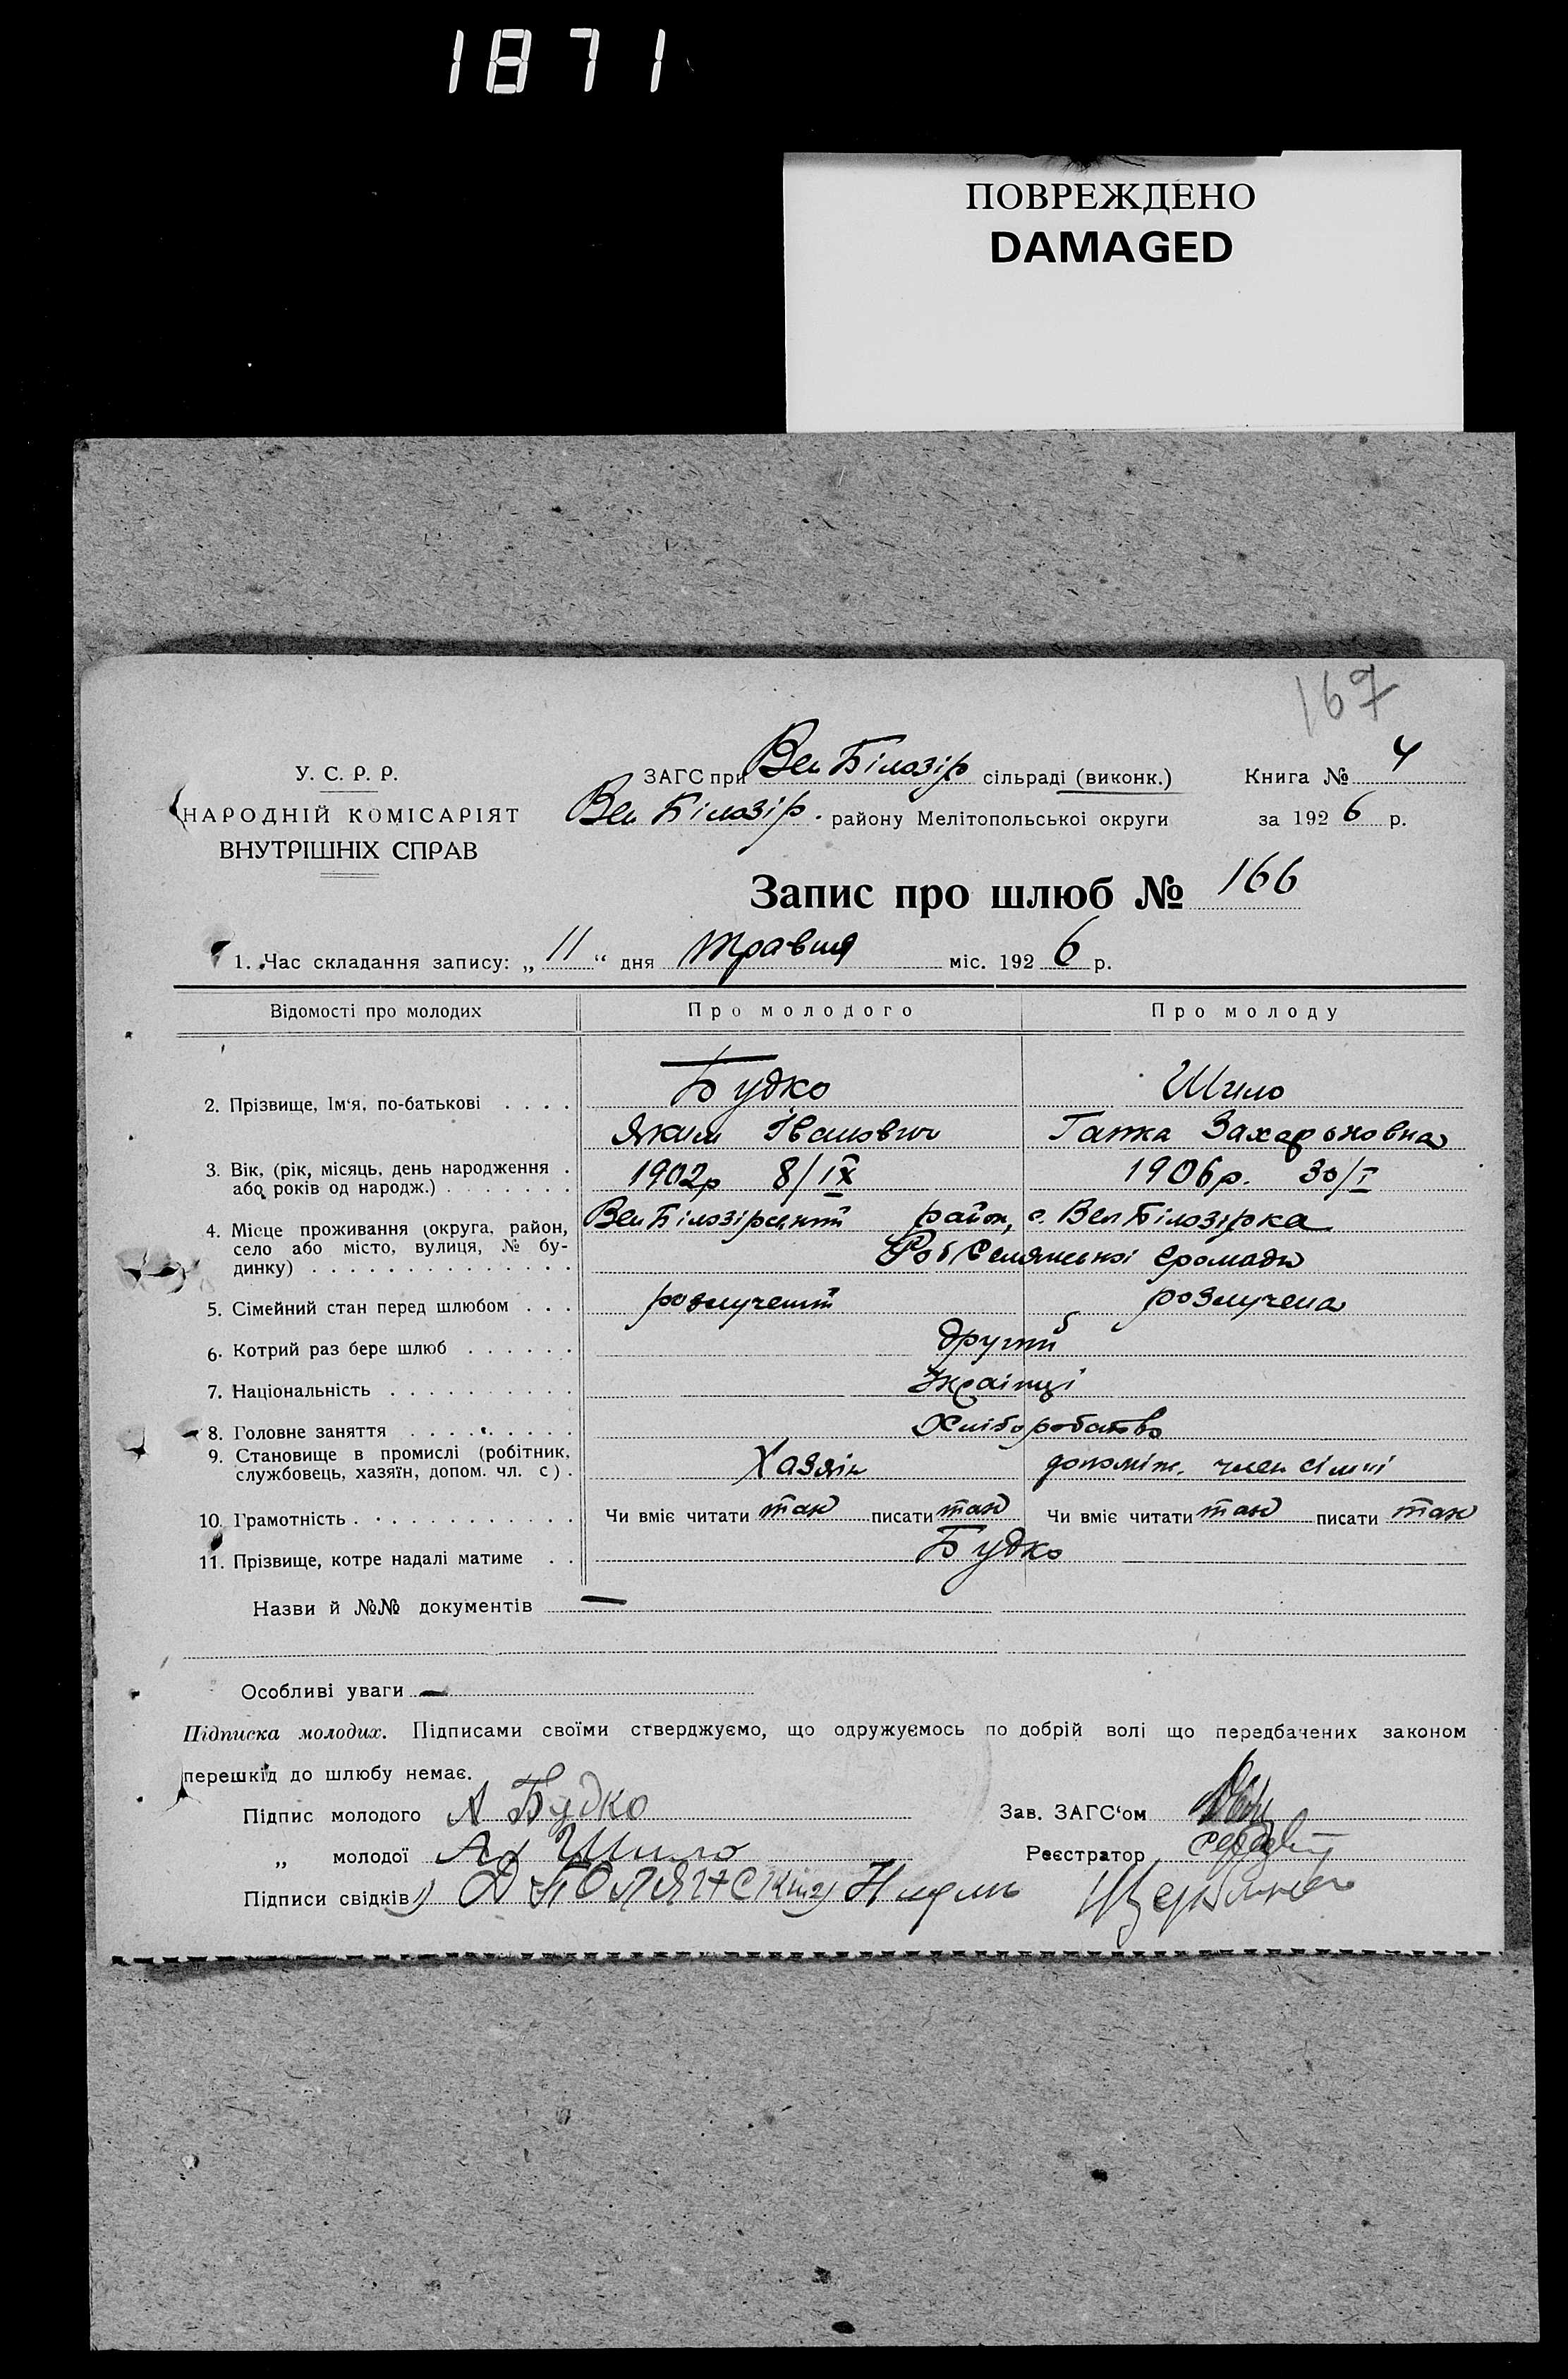 1871
ПОВРЕЖДЕНО
DAMAGED
167
У. С. Р. Р.
НАРОДНІЙ КОМІСАРІЯТ
ВНУТРІШНІХ СПРАВ
ЗАГС при Вел Білозір сільраді (виконк.)
Вел Білозір. району Мелітопольської округи
Книга № 4
за 1926 р.
Запис про шлюб № 166
1. Час складання запису: „ 11 “ дня травня міс. 1926 р.
Відомості про молодих Про молодого Про молоду
2. Прізвище, Ім'я, по-батькові . . . . Будко Шило
Яким Іванович Гапка Захарьковна
3. Вік, (рік, місяць, день народження .
або років од народж.) . . . . . . . 1902р 8/IX 1906р. 30/I
4. Місце проживання (округа, район,
село або місто, вулиця, № бу-
динку) . . . . . . . . . . . . . .
Вел Білозірський район, с. Вел Білозірка
Роб Селянської громади
5. Сімейний стан перед шлюбом . . . розлучений розлучена
6. Котрий раз бере шлюб . . . . . . другий
7. Національність . . . . . . . . . . Українці
8. Головне заняття . . . . . . . . . Хліборобство
9. Становище в промислі (робітник,
службовець, хазяїн, допом. чл. с) . Хазяїн допоміж. член сімьї
10. Грамотність . . . . . . . . . . . . Чи вміє читати так писати так Чи вміє читати так писати так
11. Прізвище, котре надалі матиме . . Будко
Назви й №№ документів —
Особливі уваги —
Підписка молодих. Підписами своїми стверджуємо, що одружуємось по добрій волі що передбачених законом
перешкід до шлюбу немає.
Підпис молодого А Будко
Зав. ЗАГС‘ом
„ молодої Шило
Реєстратор
Підписи свідків 1) 2)